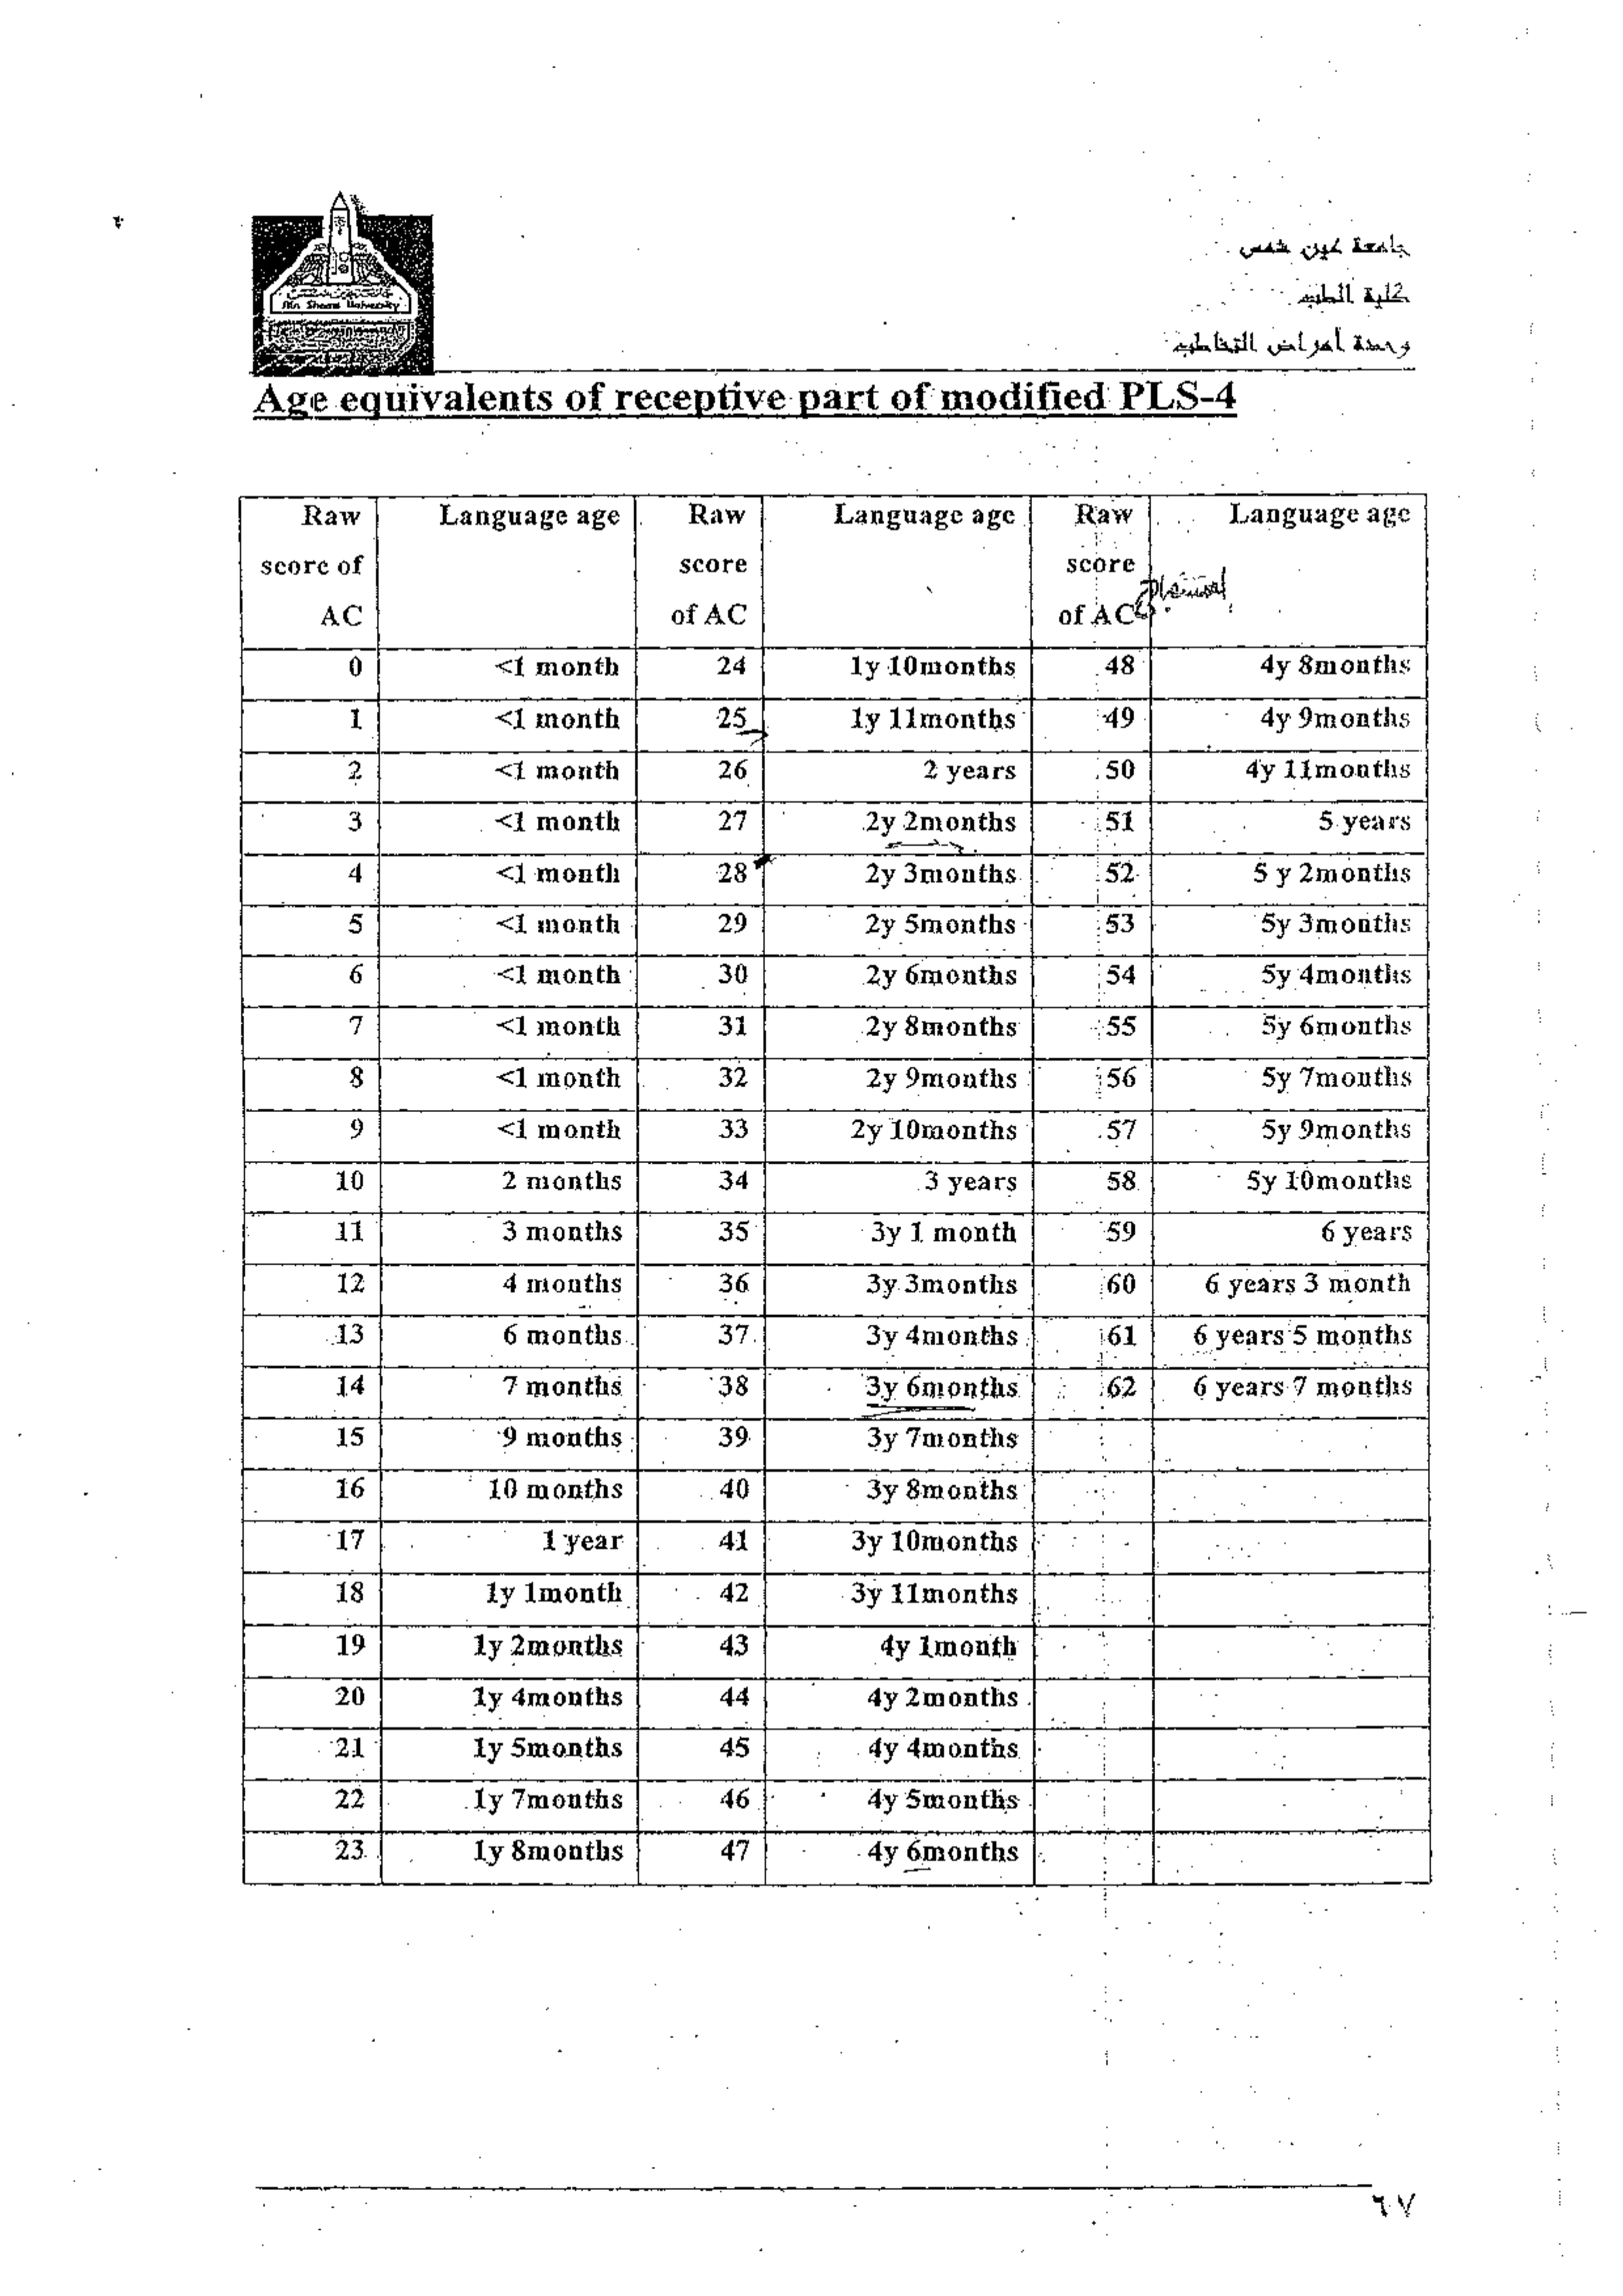 جامعة عين شمس
كلية الطب
وحدة أمراض التخاطب
Ain Shams University
Age equivalents of receptive part of modified PLS-4
Raw score of AC | Language age | Raw score of AC | Language age | Raw score of AC | Language age
0 | <1 month | 24 | 1y 10months | 48 | 4y 8months
1 | <1 month | 25 | 1y 11months | 49 | 4y 9months
2 | <1 month | 26 | 2 years | 50 | 4y 11months
3 | <1 month | 27 | 2y 2months | 51 | 5 years
4 | <1 month | 28 | 2y 3months | 52 | 5 y 2months
5 | <1 month | 29 | 2y 5months | 53 | 5y 3months
6 | <1 month | 30 | 2y 6months | 54 | 5y 4months
7 | <1 month | 31 | 2y 8months | 55 | 5y 6months
8 | <1 month | 32 | 2y 9months | 56 | 5y 7months
9 | <1 month | 33 | 2y 10months | 57 | 5y 9months
10 | 2 months | 34 | 3 years | 58 | 5y 10months
11 | 3 months | 35 | 3y 1 month | 59 | 6 years
12 | 4 months | 36 | 3y 3months | 60 | 6 years 3 month
13 | 6 months | 37 | 3y 4months | 61 | 6 years 5 months
14 | 7 months | 38 | 3y 6months | 62 | 6 years 7 months
15 | 9 months | 39 | 3y 7months
16 | 10 months | 40 | 3y 8months
17 | 1 year | 41 | 3y 10months
18 | 1y 1month | 42 | 3y 11months
19 | 1y 2months | 43 | 4y 1month
20 | 1y 4months | 44 | 4y 2months
21 | 1y 5months | 45 | 4y 4months
22 | 1y 7months | 46 | 4y 5months
23 | 1y 8months | 47 | 4y 6months
٦٧